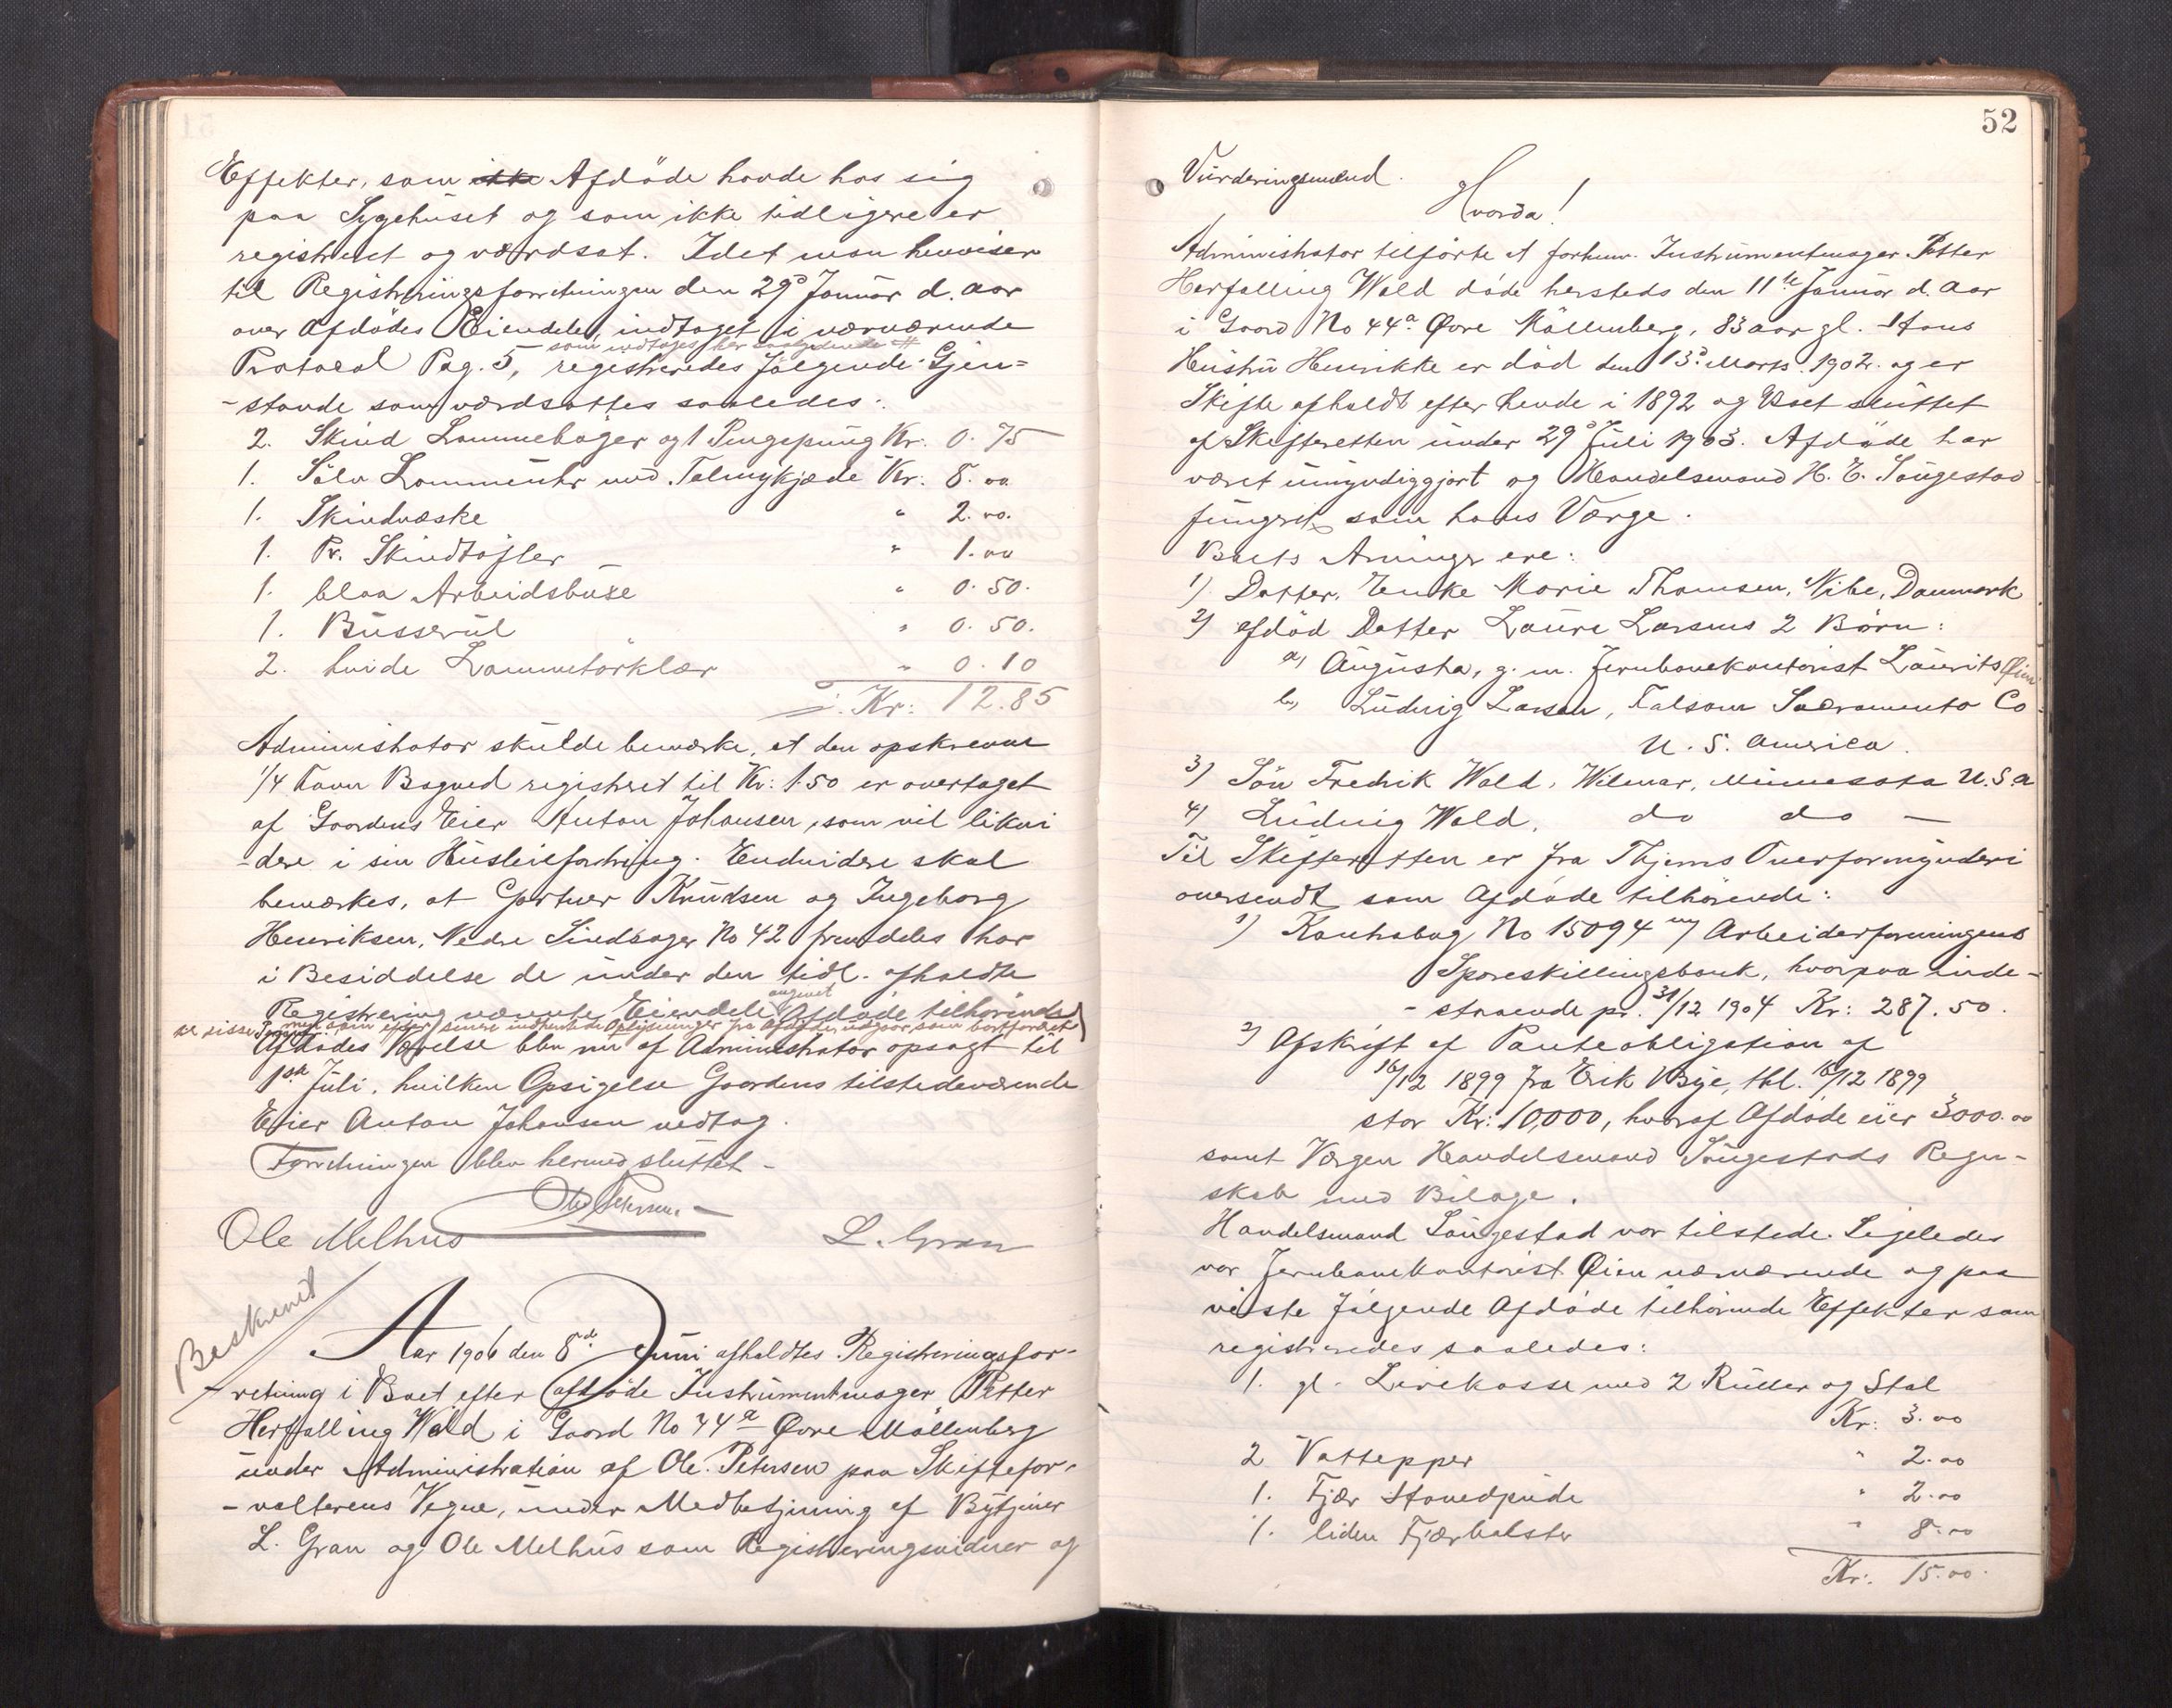 Effekter, som ikke Afdöde havde hos sig
paa Sygehuset og som ikke tidligere er
registreret og værdsat. Idet man henviser
til Registreringsforretningen den 29de Januar d. Aar
over Afdödes Eiendele, indtaget i nærværende
som indtages her
Protocol Pag. 5, registreredes fölgende Gjen=
-stande som værdsattes saaledes:
2. Skind Lommeböger og 1 Pengepung Kr. 0.75
1. Sölv Lommeuhr med Talmykjæde Kr. 8.00
1. Skindvæske " 2.00.
1. Pr. Skindtöfler " 1.00
1. blaa Arbeidsbuxe " 0.50.
1. Busserul " 0.50.
2. hvide Lommetörklær " 0.10
Kr: 12.85
Administrator skulde bemærke, at den opskrevne
1/4 Favn Bagved registreret til Kr: 1.50 er overtaget
af Gaardens Eier Anton Johansen, som vil likvi
-dere i sin Husleiefordring. Endvidere skal
bemærkes, at Gartner Knudsen og Ingeborg
Henriksen, Nedre Singsager No 42 fremdeles har
i Besiddelse de under den tidl. afholdte
angivet
Registrering nævnte Eiendele Afdöde tilhörende
men som efter senere indhentede Oplysninger fra Afdöde udgaar som bortforæret
Afdödes Værelse blev nu af Administrator opsagt til
1ste Juli, hvilken Opsigelse Gaardens tilstedeværende
Eier Anton Johansen vedtog.
Forretningen blev hermed sluttet -
Ole Petersen
Ole Melhus L. Gran
Beskrevet
Aar 1906 den 8de Juni afholdtes Registreringsfor-
-retning i Boet efter afdöde Instrumentmager Petter
Herfalling Wald i Gaard No 44a Øvre Möllenberg
under Administration af Ole Petersen paa Skiftefor-
-valterens Vegne, under Medbetjening af Bytjener
L. Gran og Ole Melhus som Registreringsvidner og
52
Vurderingsmænd.
Hvorda!
Administrator tilförte at forhenv. Instrumentmager Petter
Herfalling Wald döde hersteds den 11te Januar d. Aar
i Gaard No 44a Øvre Möllenberg, 83 aar gl. Hans
Hustru Henrikke er död den 13de Marts 1902 og er
Skifte afholdt efter hende i 1892 og Boet sluttet
af Skifteretten under 29de Juli 1903. Afdöde har
været umyndiggjort og Handelsmand H. E. Saugestad
fungeret som hans Værge.
Boets Arvinger ere:
1) Datter, Enke Marie Thomsen, Nibe, Danmark
2) afdöd Datter Laura Larsens 2 Börn:
a, Augusta, g. m. Jernbanekontorist Laurits Øien
b, Ludvig Larsen, Falsom Sacramento Co
U. S. America.
3) Sön Fredrik Wald, Wilmar, Minnesota U.S.a
4) Ludvig Wald, do do —
Til Skifteretten er fra Thjems Overformynderi
oversendt som Afdöde tilhörende:
1) Kontrabog No 15094 m/ Arbeiderforeningens
Spareskillingsbank, hvorpaa inde-
-staaende pr. 31/12 1904 Kr: 287.50.
2) Afskrift af Panteobligation af
16/12 1899 fra Erik Bye, thl. 16/12 1899
stor Kr: 10,000, hvoraf Afdöde eier 3000.00
samt Værgen Handelsmand Saugestads Regn-
skab med Bilage.
Handelsmand Saugestad var tilstede. Ligeledes
var Jernbanekontorist Øien nærværende og paa
viste fölgende Afdöde tilhörende Effekter som
registreredes saaledes:
1. gl. Lirekasse med 2 Ruller og Stol
Kr: 3.00
2 Vattepper " 2.00
1. Fjær Hovedpude " 2.00
1. liden Fjærbolster " 8.00
Kr: 15.00.